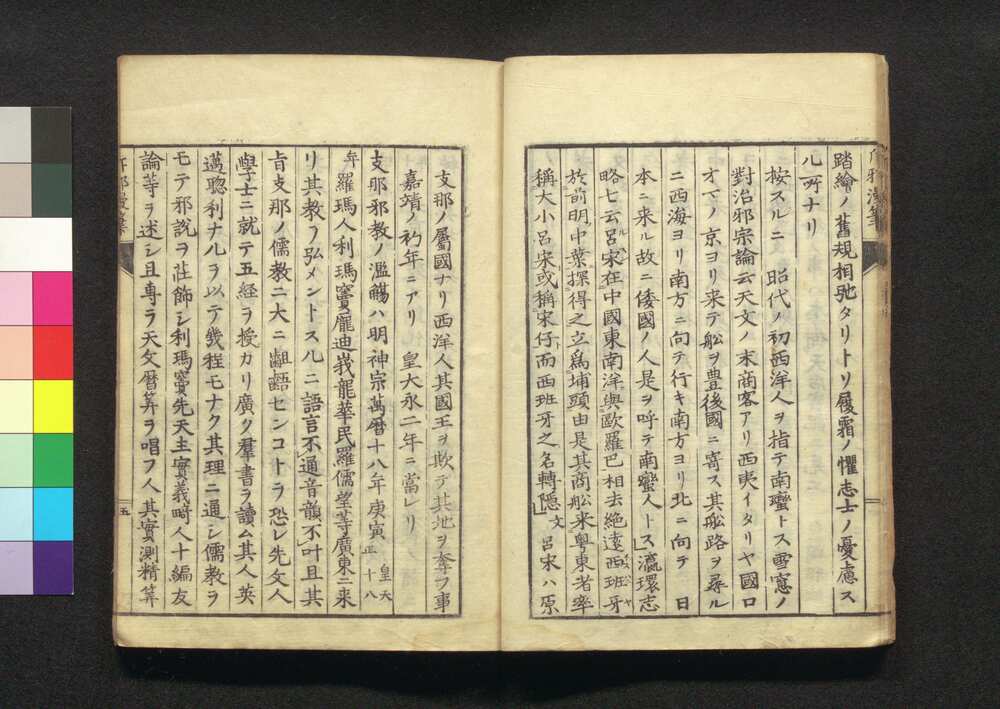 踏繪ノ舊規相弛タリトソ履霜ノ懼志士ノ憂慮ス
ル所ナリ
按スルニ　昭代ノ初西洋人ヲ指テ南蠻トス雪窓ノ
對治邪宗論云天文ノ末商客アリ西夷イタリヤ國ロ
オマノ京ヨリ来テ舩ヲ豊後國ニ寄ス其舩路ヲ尋ル
ニ西海ヨリ南方ニ向テ行キ南方ヨリ北ニ向テ　日
本ニ来ル故ニ倭國ノ人是ヲ呼テ南蠻人トス」瀛環志
略七云呂宋在中國東南洋與歐羅巴相去絶遠西班牙
於前明中葉探得之立爲埔頭由是其商舩来粤東者率
稱大小呂宋或稱宋仔而西班牙之名轉隱」文呂宋ハ原
支那ノ屬國ナリ西洋人其國王ヲ欺テ其地ヲ奪フ事
嘉靖ノ初年ニアリ　皇大永二年ニ當レリ
支那邪教ノ濫觴ハ明神宗萬暦十八年庚寅皇天正十八
年羅瑪人利瑪竇龐迪峩龍華民羅儒望等廣東ニ来
リ其教ヲ弘メントスルニ語言不通音韻不叶且其
旨支那ノ儒教ニ大ニ齟齬センコトヲ恐レ先文人
學士ニ就テ五経ヲ授カリ廣ク羣書ヲ讀ム其人英
邁聡利ナルヲ以テ幾程モナク其理ニ通シ儒教ヲ
モテ邪説ヲ荘飾シ利瑪竇先天主實義畸人十編友
論等ヲ述シ且専ラ天文暦算ヲ唱フ人其實測精算
五